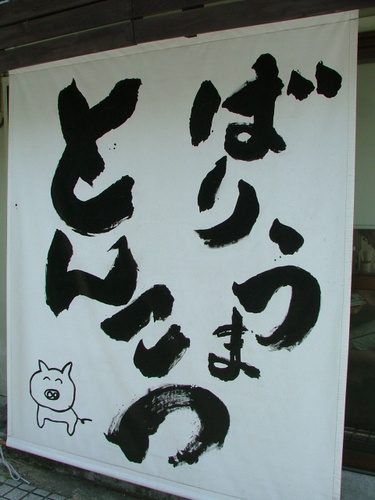 ばりうま
とんこつ